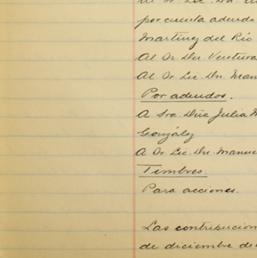 al Sr. Lic. Dn.
por cuenta adeudo
Martinez del Rio
Al Sr. Dn. Ventura
Al Sr. Lic. Dn. Man
Por adeudos.
A Sra. Dña Julia M
González
A Sr. Lic. Dn. Manue
Timbres.
Para acciones.
Las contribucion
de diciembre de